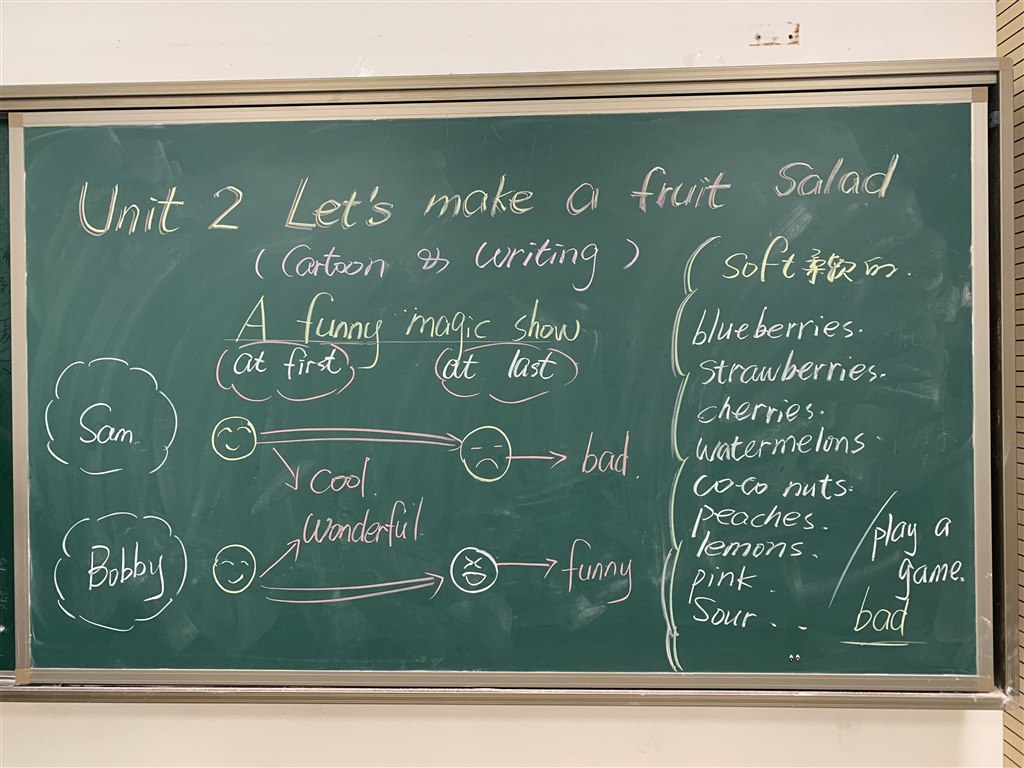 Unit 2 Let's make a fruit Salad
(Cartoon & writing)
A funny magic show
at first
at last
Sam
bad.
cool.
wonderful.
Bobby
funny
soft 柔软的.
blueberries.
strawberries.
cherries.
watermelons.
coconuts.
peaches.
lemons.
pink.
Sour...
play a
game.
bad